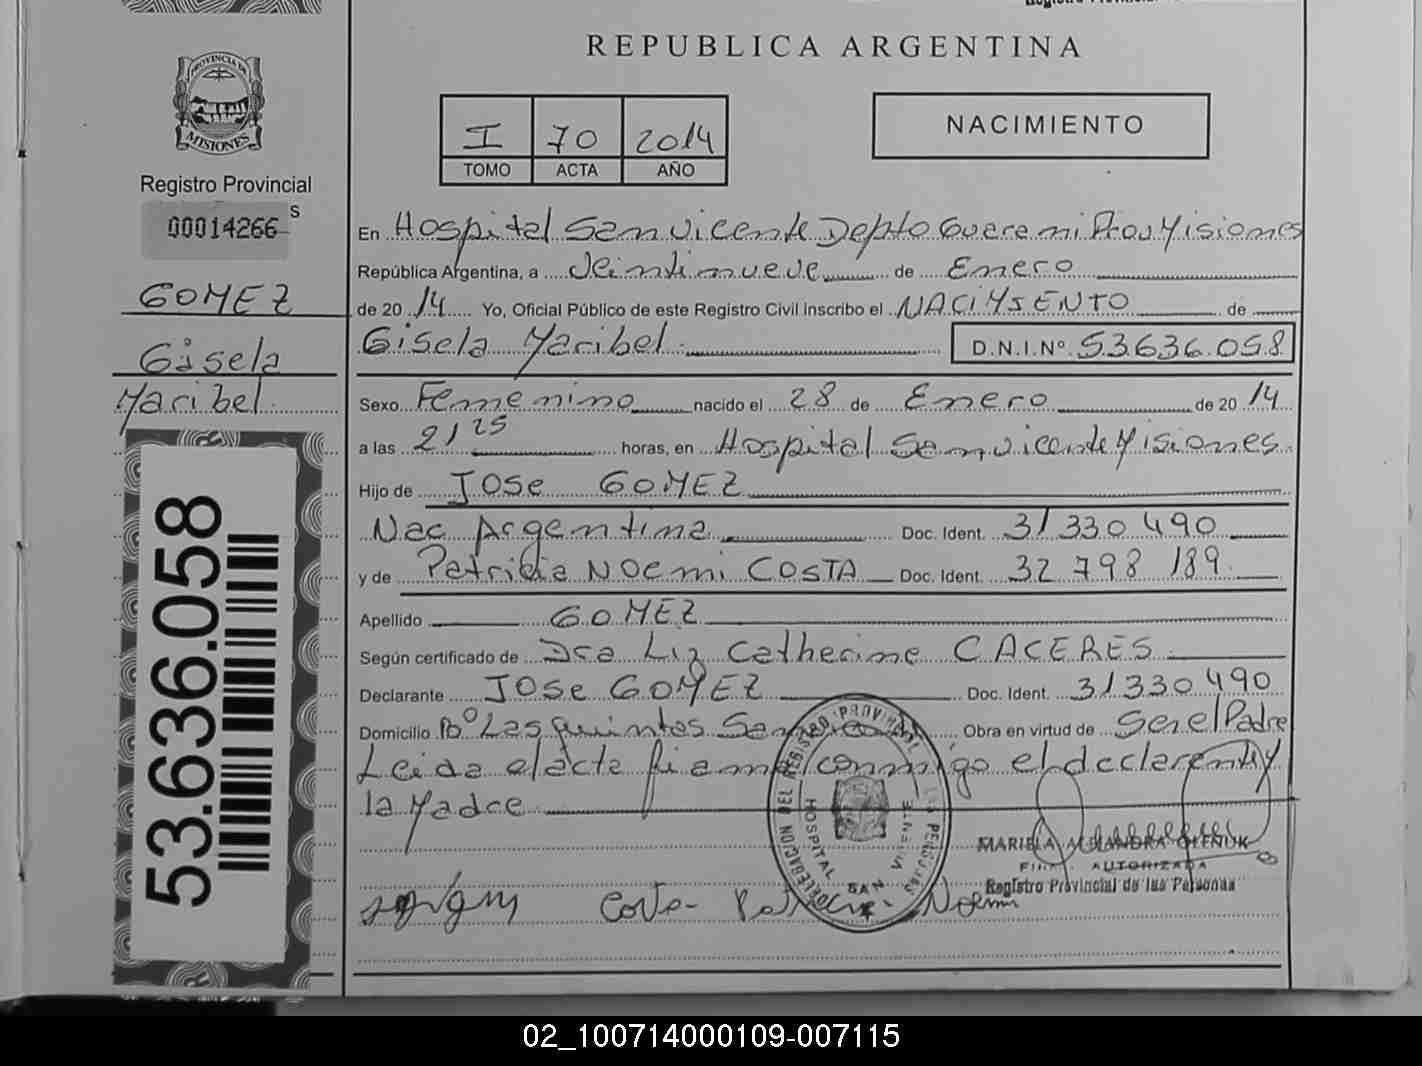 REPUBLICA ARGENTINA
PROVINCIA DE
MISIONES
Registro Provincial
00014266 S
GOMEZ
Gisela
Maribel
53.636.058
I 70 2014
TOMO ACTA AÑO
NACIMIENTO
En Hospital San Vicente Depto Guarani Prov Misiones
República Argentina, a Veintinueve de Enero
de 20 14 Yo, Oficial Público de este Registro Civil inscribo el NACIMIENTO de
Gisela Maribel D.N.I.Nº 53.636.058
Sexo Femenino nacido el 28 de Enero de 20 14
a las 21 25 horas, en Hospital San Vicente Misiones
Hijo de JOSe GOMEZ
Nac Argentina Doc. Ident. 31 330 490
y de Patricia NOemi COSTA Doc. Ident. 32 798 189
Apellido GOMEZ
Según certificado de Dra Liz Catherine CACERES
Declarante JOSe GOMEZ Doc. Ident. 31 330 490
Domicilio Bº Las quintas San Obra en virtud de Ser el Padre
Leida el acta firma conmigo el declarante y
la Madre
DELEGACION DEL REGISTRO PROVINCIAL DE LAS PERSONAS
HOSPITAL SAN VICENTE
MARIELA ALEJANDRA OLENIUK
FIRMA AUTORIZADA
Registro Provincial de las Personas
Costa Patricia Noemi
02_100714000109-007115